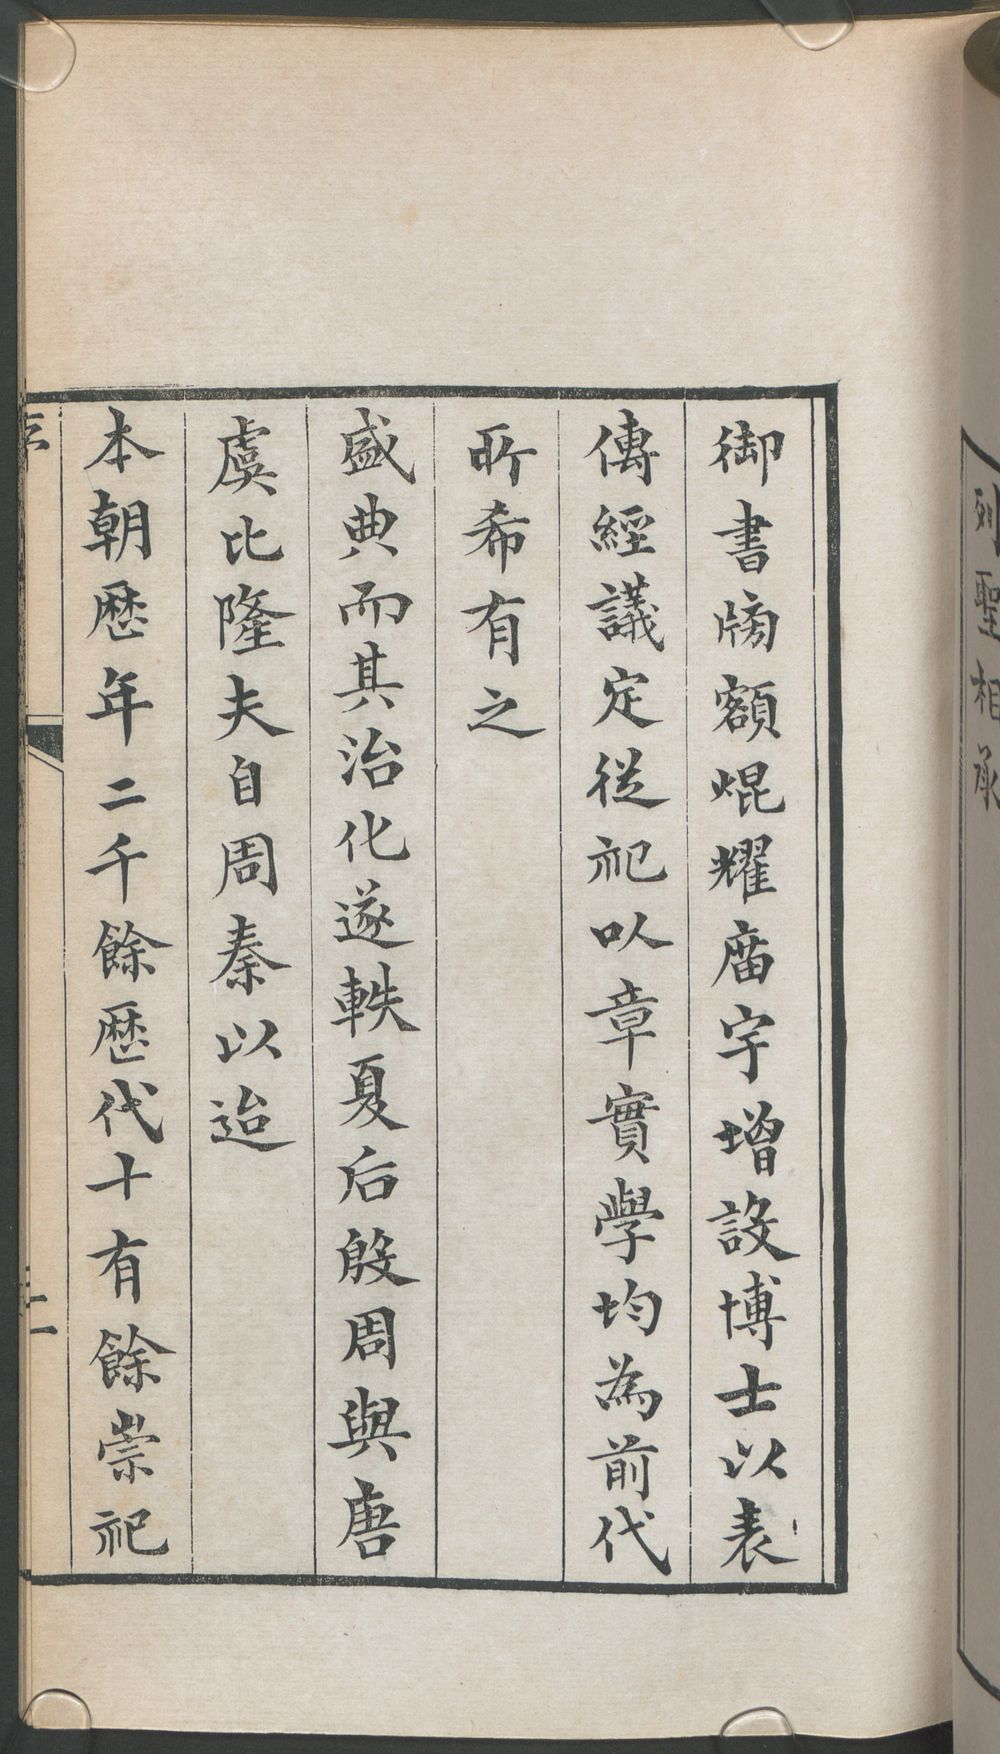 列聖相承
御書牓額焜耀庙宇增設博士以表
傳經議定從祀以章實學均為前代
所希有之
盛典而其治化遂軼夏后殷周與唐
虞比隆夫自周秦以迨
本朝歷年二千餘歷代十有餘崇祀
序
二